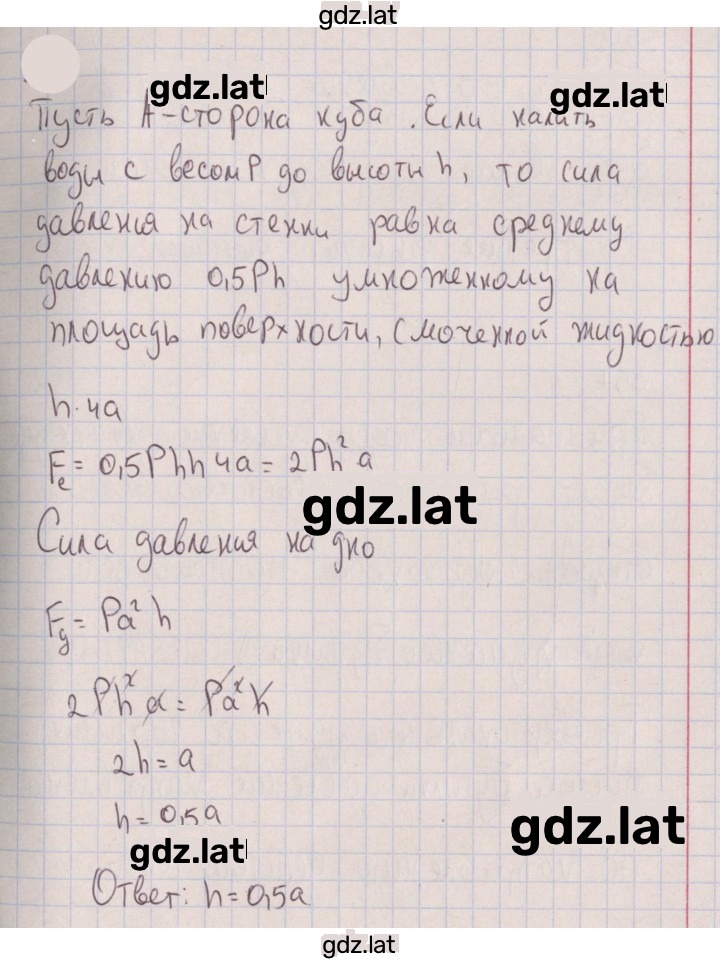 gdz.lat
gdz.lat
gdz.lat
Пусть А-сторона куба. Если налить
воды с весом P до высоты h, то сила
давления на стенки равна среднему
давлению 0,5Ph умноженному на
площадь поверхности, смоченной жидкостью
h·4a
Fe = 0,5Phh4a = 2Ph²a
gdz.lat
Сила давления на дно
Fg = Pa²h
2Ph²a = Pa²h
2h = a
h = 0,5a
gdz.lat
gdz.lat
Ответ: h = 0,5a
gdz.lat